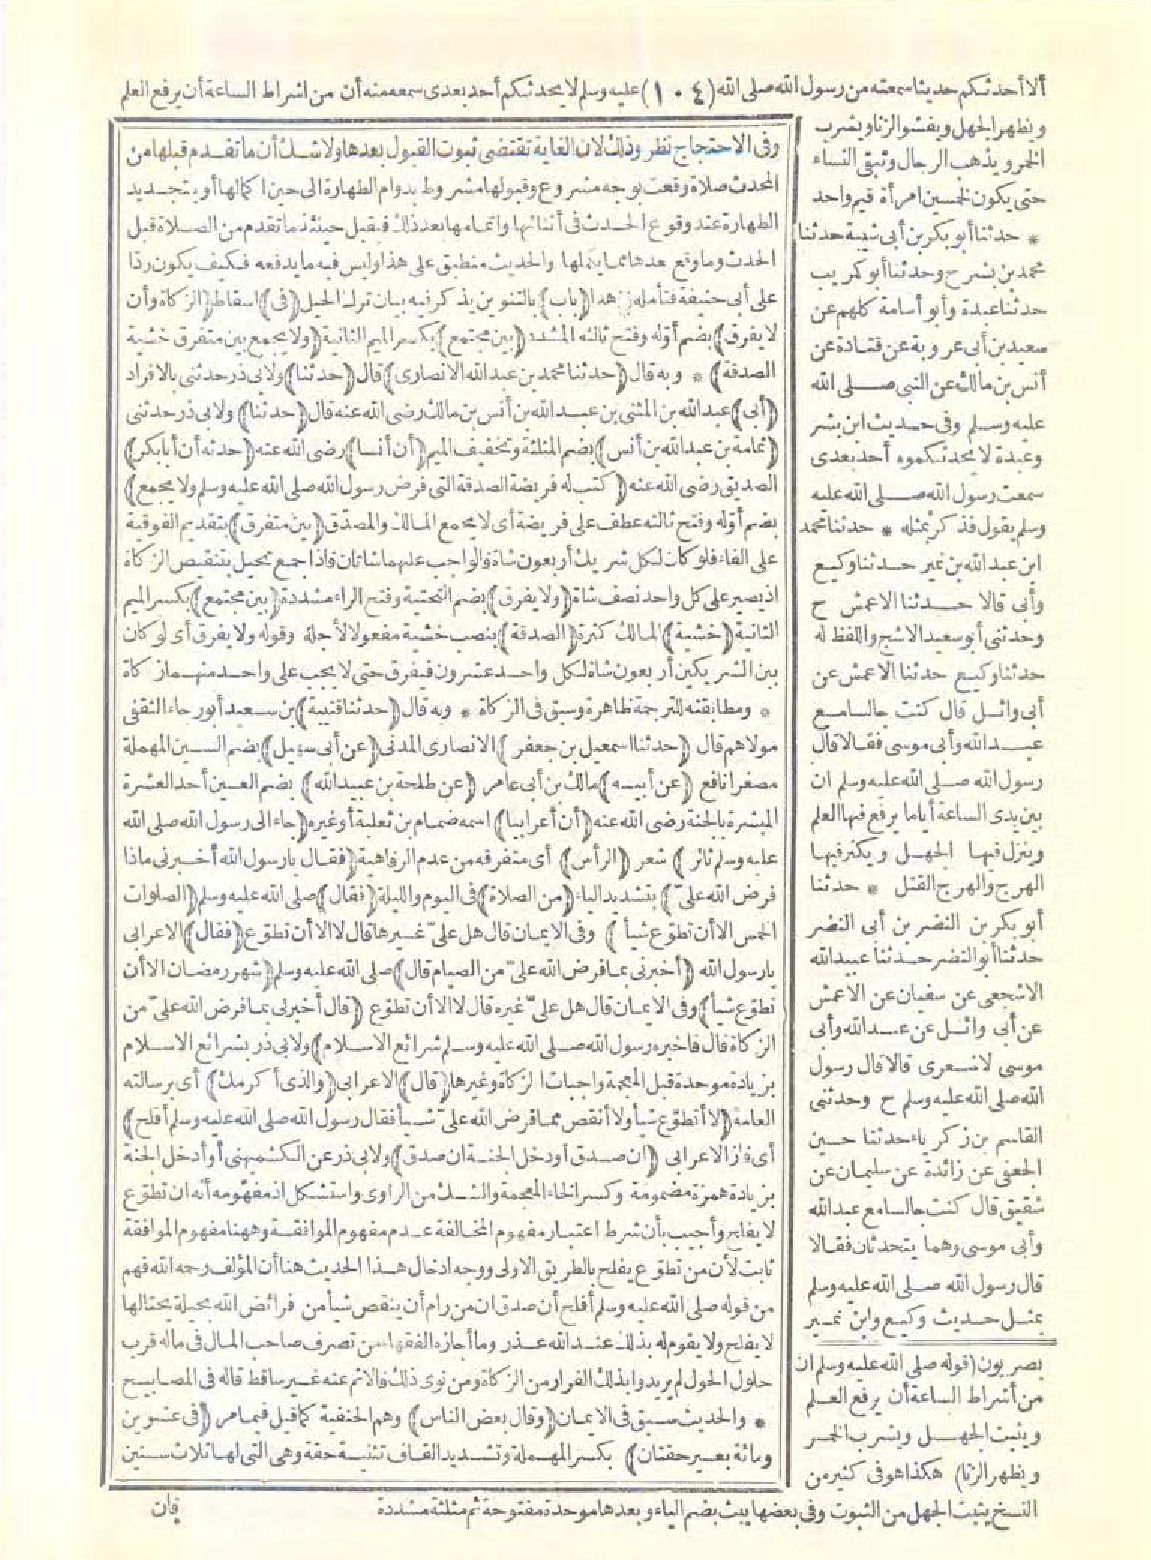 ألا أحدثكم حديثا سمعته من رسول الله صلى الله (١٠٤) عليه وسلم لا يحدثكم أحد بعدى سمعه منه أن من اشراط الساعة أن يرفع العلم
ويظهر الجهل ويفشو الزنا ويشرب
الخمر ويذهب الرجال وتبقى النساء
حتى يكون لخمسين امرأة قيم واحد
* حدثنا أبو بكر بن أبى شيبة حدثنا
محمد بن بشر ح وحدثنا أبو كريب
حدثنا عبدة وأبو أسامة كلهم عن
سعيد بن أبى عروبة عن قتادة عن
أنس بن مالك عن النبى صلى الله
عليه وسلم وفى حديث ابن بشر
وعبدة لا يحدثكموه أحد بعدى
سمعت رسول الله صلى الله عليه
وسلم يقول فذكر بمثله * حدثنا محمد
ابن عبد الله بن نمير حدثنا وكيع
وأبى قالا حدثنا الاعمش ح
وحدثنى أبو سعيد الاشج واللفظ له
حدثنا وكيع حدثنا الاعمش عن
أبى وائل قال كنت جالسا مع
عبد الله وأبى موسى فقالا قال
رسول الله صلى الله عليه وسلم ان
بين يدى الساعة أياما يرفع فيها العلم
وينزل فيها الجهل ويكثر فيها
الهرج والهرج القتل * حدثنا
أبو بكر بن النضر بن أبى النضر
حدثنا أبو النضر حدثنا عبيد الله
الاشجعى عن سفيان عن الاعمش
عن أبى وائل عن عبد الله وأبى
موسى الاشعرى قالا قال رسول
الله صلى الله عليه وسلم ح وحدثنى
القاسم بن زكرياء حدثنا حسين
الجعفى عن زائدة عن سليمان عن
شقيق قال كنت جالسا مع عبد الله
وأبى موسى وهما يتحدثان فقالا
قال رسول الله صلى الله عليه وسلم
بمثل حديث وكيع وابن نمير
بصريون (قوله صلى الله عليه وسلم ان
من أشراط الساعة أن يرفع العلم
ويثبت الجهل ويشرب الخمر
ويظهر الزنا) هكذا هو فى كثير من
النسخ يثبت الجهل من الثبوت وفى بعضها يبث بضم الياء وبعدها موحدة مفتوحة ثم مثلثة مشددة
وفى الاحتجاج نظر وذلك لان الغاية تقتضى ثبوت القبول بعدها ولا شك أن ما تقدم قبلها من
المحدث صلاة وقعت بوجه مشروع وقبولها مشروط بدوام الطهارة الى حين اكمالها أو بتجديد
الطهارة عند وقوع الحدث فى أثنائها واتمامها بعد ذلك فيقبل حينئذ ما تقدم من الصلاة قبل
الحدث وما وقع بعدها مما يكملها والحديث منطبق على هذا وليس فيه ما يدفعه فكيف يكون ردّا
على أبى حنيفة فتأمله هذا (باب) بالتنوين يذكر فيه بيان ترك الحيل (فى) اسقاط (الزكاة وأن
لا يفرق) بضم أوله وفتح ثالثه المشدد (بين مجتمع) بكسر الميم الثانية (ولا يجمع بين متفرق خشية
الصدقة) * وبه قال (حدثنا محمد بن عبد الله الانصارى) قال (حدثنا) ولابى ذر حدثنى بالافراد
(أبى) عبد الله بن المثنى بن عبد الله بن أنس بن مالك رضى الله عنه قال (حدثنا) ولابى ذر حدثنى
(ثمامة بن عبد الله بن أنس) بضم المثلثة وتخفيف الميم (أن أنسا) رضى الله عنه (حدثه أن أبا بكر)
الصديق رضى الله عنه (كتب له فريضة الصدقة التى فرض رسول الله صلى الله عليه وسلم ولا يجمع)
بضم أوله وفتح ثالثه عطف على فريضة أى لا يجمع المالك والمصدّق (بين متفرق) بتقديم الفوقية
على الفاء فلو كان لكل شريك أربعون شاة فالواجب عليهما شاتان فاذا جمع تحيل بتنقيص الزكاة
اذ يصير على كل واحد نصف شاة (ولا يفرق) بضم التحتية وفتح الراء مشددة (بين مجتمع) بكسر الميم
الثانية (خشية) المالك كثرة (الصدقة) بنصب خشية مفعولا لأجله وقوله ولا يفرق أى لو كان
بين الشريكين أربعون شاة لكل واحد عشرون فيفرق حتى لا يجب على واحد منهما زكاة
* ومطابقته للترجمة ظاهرة وسبق فى الزكاة * وبه قال (حدثنا قتيبة) بن سعيد أبو رجاء الثقفى
مولاهم قال (حدثنا اسمعيل بن جعفر) الانصارى المدنى (عن أبى سهيل) بضم السين المهملة
مصغرا نافع (عن أبيه) مالك بن أبى عامر (عن طلحة بن عبيد الله) بضم العين أحد العشرة
المبشرة بالجنة رضى الله عنه (أن أعرابيا) اسمه ضمام بن ثعلبة أو غيره (جاء الى رسول الله صلى الله
عليه وسلم ثائر) شعر (الرأس) أى متفرقه من عدم الرفاهية (فقال يا رسول الله أخبرنى ماذا
فرض الله علىّ) بتشديد الياء (من الصلاة) فى اليوم والليلة (فقال) صلى الله عليه وسلم (الصلوات
الخمس الا أن تطوّع شيأ) وفى الايمان قال هل علىّ غيرها قال لا الا أن تطوّع (فقال) الاعرابى
يا رسول الله (أخبرنى بما فرض الله علىّ من الصيام قال) صلى الله عليه وسلم (شهر رمضان الا أن
تطوّع شيأ) وفى الايمان قال هل علىّ غيره قال لا الا أن تطوّع (قال أخبرنى بما فرض الله علىّ من
الزكاة قال فاخبره رسول الله صلى الله عليه وسلم شرائع الاسلام) ولابى ذر بشرائع الاسلام
بزيادة موحدة قبل المعجمة واجبات الزكاة وغيرها (قال) الاعرابى (والذى أكرمك) أى برسالته
العامة (لا أتطوّع شيأ ولا أنقص مما فرض الله علىّ شيأ فقال رسول الله صلى الله عليه وسلم أفلح)
أى فاز الاعرابى (ان صدق أو دخل الجنة ان صدق) ولابى ذر عن الكشميهنى أو أدخل الجنة
بزيادة همزة مضمومة وكسر الخاء المعجمة والشك من الراوى واستشكل اذ مفهومه أنه ان تطوّع
لا يفلح وأجيب بأن شرط اعتبار مفهوم المخالفة عدم مفهوم الموافقة وههنا مفهوم الموافقة
ثابت لأن من تطوّع يفلح بالطريق الاولى ووجه ادخال هذا الحديث هنا أن المؤلف رحمه الله فهم
من قوله صلى الله عليه وسلم أفلح أن صدق ان من رام أن ينقص شيأ من فرائض الله بحيلة يحتالها
لا يفلح ولا يقوم له بذلك عند الله عذر وما أجازه الفقهاء من تصرف صاحب المال فى ماله قرب
حلول الحول لم يريدوا بذلك الفرار من الزكاة ومن نوى ذلك فالاثم عنه غير ساقط قاله فى المصابيح
* والحديث سبق فى الايمان (وقال بعض الناس) وهم الحنفية كما قيل فيما مر (فى عشرين
ومائة بعير حقتان) بكسر المهملة وتشديد القاف تثنية حقة وهى التى لها ثلاث سنين
فان